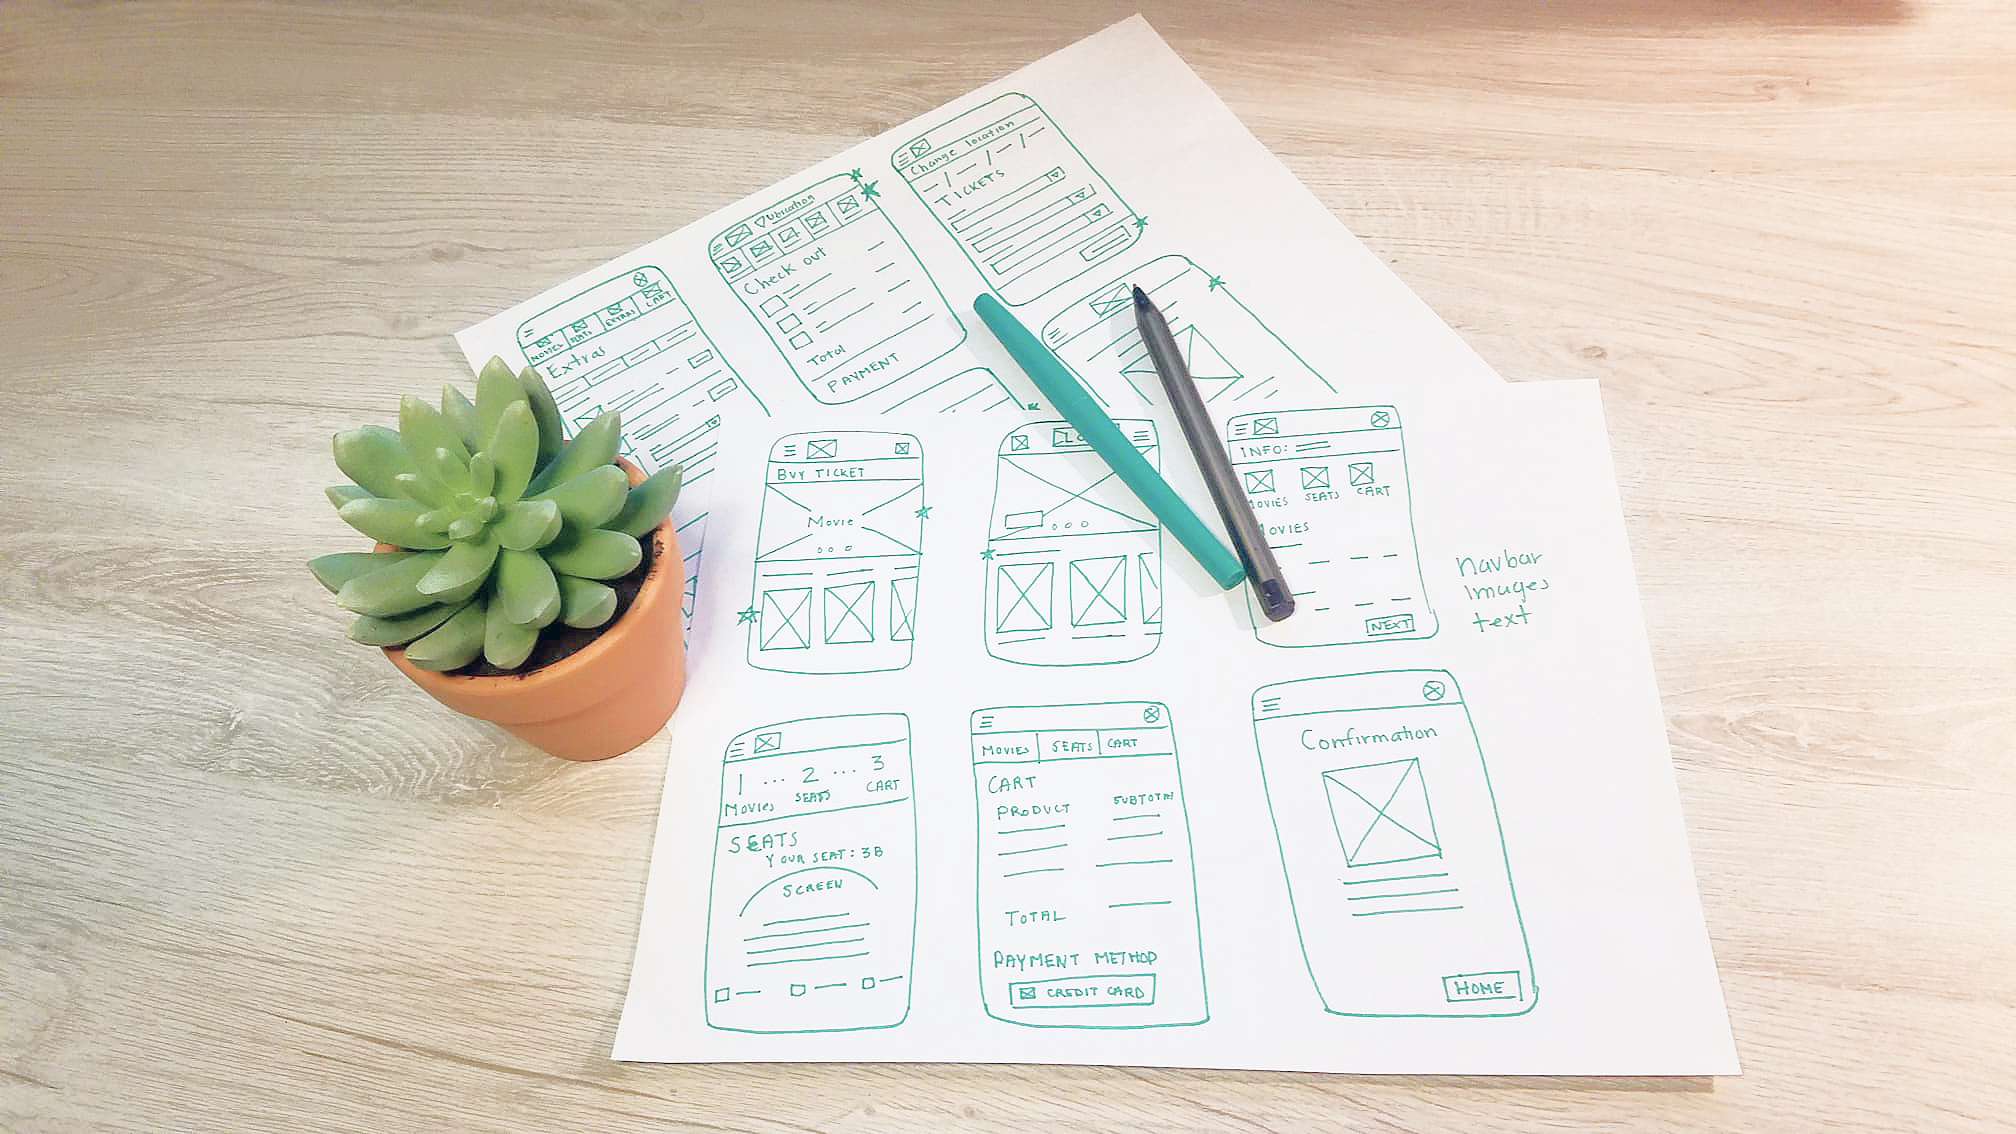 Change location
TICKETS
Ubication
Check out
Total
PAYMENT
MOVIES SEATS EXTRAS CART
Extras
BUY TICKET
Movie
INFO:
MOVIES SEATS CART
MOVIES
NEXT
Navbar
Images
text
1 ... 2 ... 3
Movies SEATS CART
SEATS
YOUR SEAT: 3B
SCREEN
MOVIES SEATS CART
CART
PRODUCT SUBTOTAl
TOTAL
PAYMENT METHOD
CREDIT CARD
Confirmation
HOME